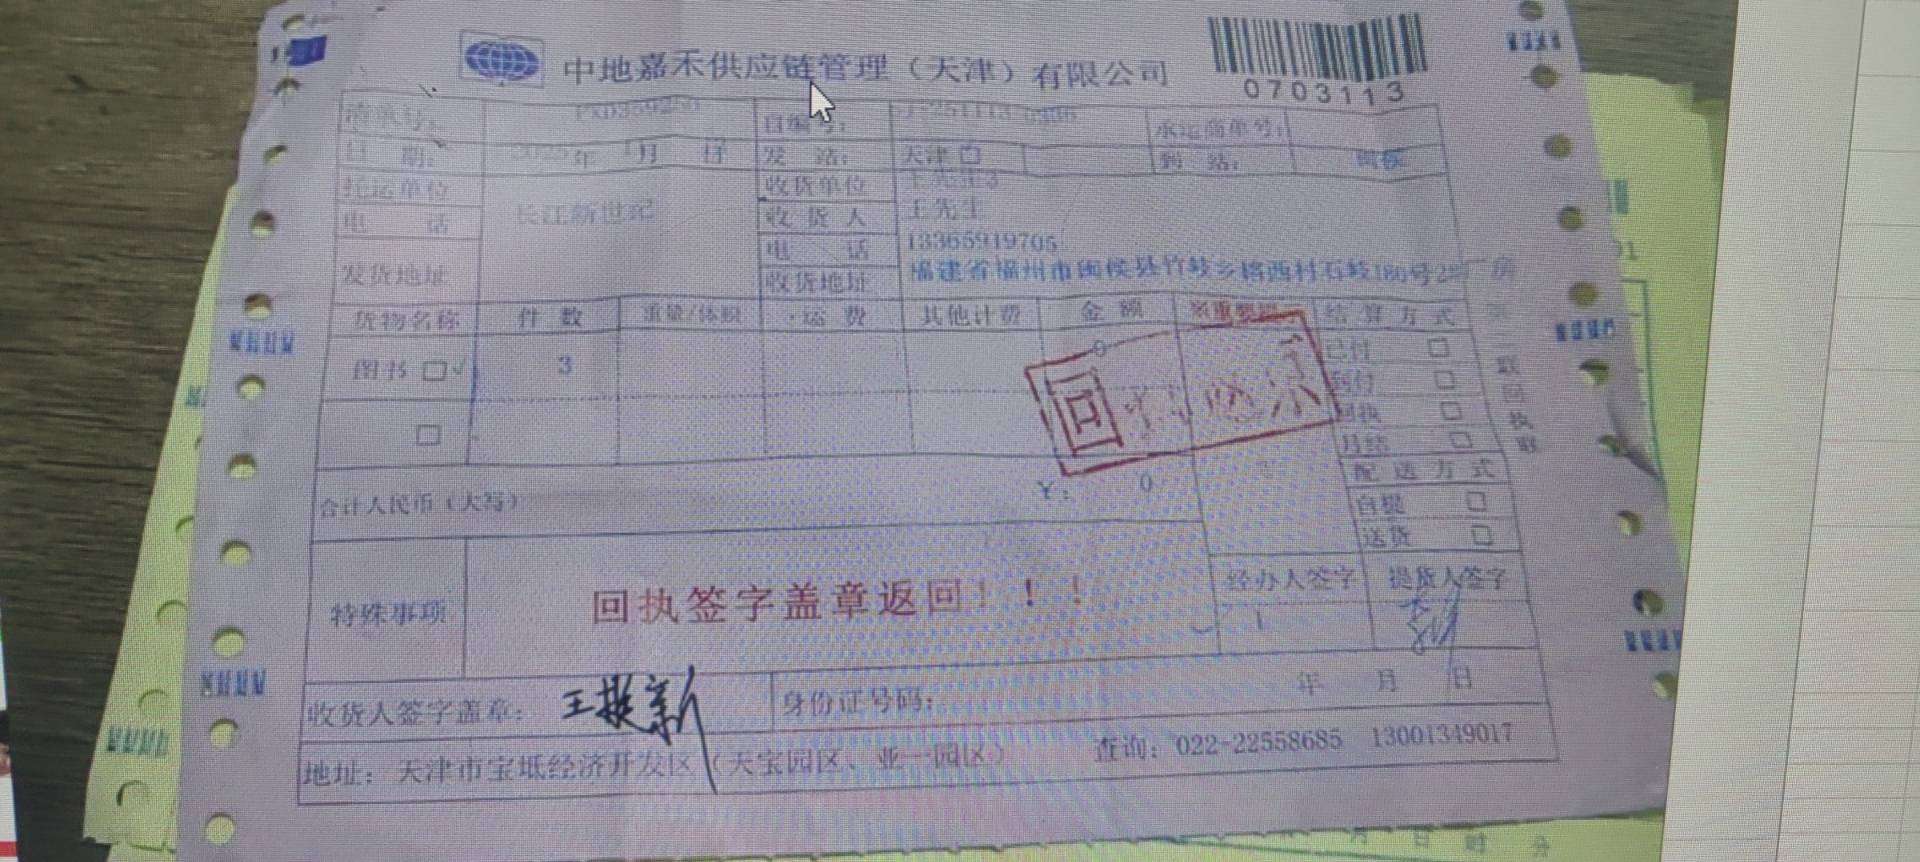 中地嘉禾供应链管理（天津）有限公司
0703113
自编号： 承运商单号：
日 期： 年 月 日 发 站： 天津 到 站： 闽侯
托运单位 长江新世纪 收货单位 王先生
电 话 收 货 人 王先生
电 话 13365919705
发货地址 收货地址 福建省福州市闽侯县竹岐乡榕西村石岐180号
货物名称 件 数 重量/体积 运 费 其他计费 金 额 结 算 方 式
图书 3 0 已付
到付
回执
月结
合计人民币（大写） ￥： 0 配 送 方 式
自提
送货
特殊事项 回执签字盖章返回！！！ 经办人签字 提货人签字
收货人签字盖章： 王挺新 身份证号码： 年 月 日
地址：天津市宝坻经济开发区（天宝园区、亚一园区） 查询：022-22558685 13001349017
月 日 时 分